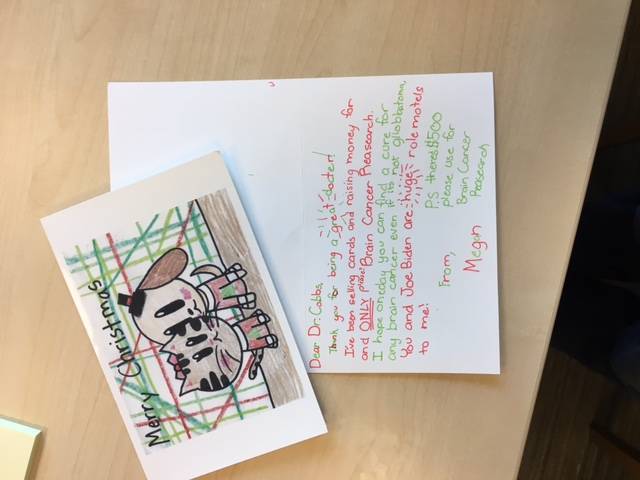 Merry Christmas
Dear Dr. Cobbs,
Thank you for being a great docter!
I've been selling cards and raising money for
and ONLY please! Brain Cancer Reasearch.
I hope oneday you can find a cure for
any brain cancer even if its not gliobbstoma,
You and Joe Biden are huge role motels
to me!
From,
Megan
P.S. theres $500
please use for
Brain Cancer
Reaserch